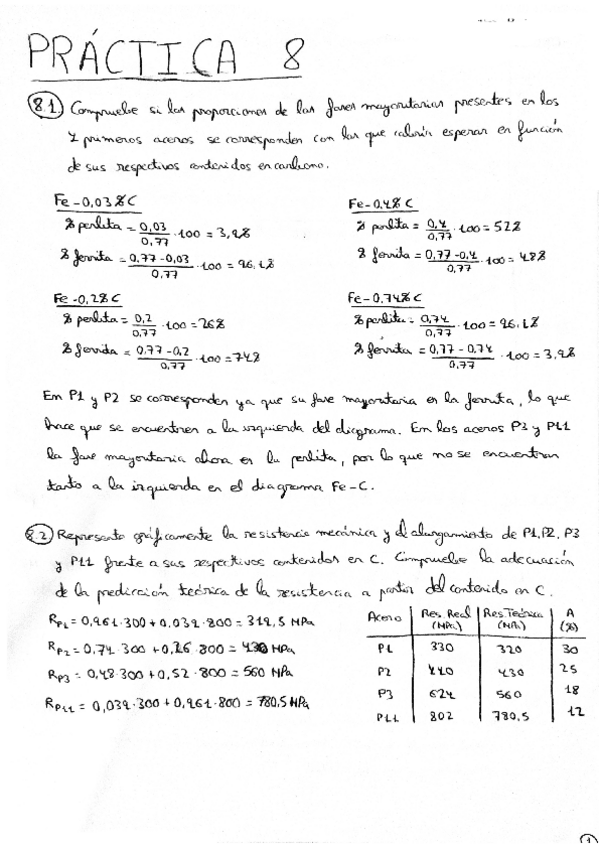 PRÁCTICA 8
8.1 Compruebe si las proporciones de las fases mayoritarias presentes en los
7 primeros aceros se corresponden con las que cabría esperar en función
de sus respectivos contenidos en carbono.
Fe-0,03%C
% perlita = 0,03/0,77 · 100 = 3,9%
% ferrita = 0,77-0,03/0,77 · 100 = 96,1%
Fe-0,4%C
% perlita = 0,4/0,77 · 100 = 52%
% ferrita = 0,77-0,4/0,77 · 100 = 48%
Fe-0,2%C
% perlita = 0,2/0,77 · 100 = 26%
% ferrita = 0,77-0,2/0,77 · 100 = 74%
Fe-0.74%C
% perlita = 0,74/0,77 · 100 = 96,1%
% ferrita = 0,77-0,74/0,77 · 100 = 3,9%
En P1 y P2 se corresponden ya que su fase mayoritaria es la ferrita, lo que
hace que se encuentren a la izquierda del diagrama. En los aceros P3 y P11
la fase mayoritaria ahora es la perlita, por lo que no se encuentran
tanto a la izquierda en el diagrama Fe-C.
8.2 Represente gráficamente la resistencia mecánica y el alargamiento de P1, P2, P3
y P11 frente a sus respectivos contenidos en C. Compruebe la adecuación
de la predicción teórica de la resistencia a partir del contenido en C.
R_P1 = 0,961·300 + 0,039·800 = 319,5 MPa
R_P2 = 0,74·300 + 0,26·800 = 430 MPa
R_P3 = 0,48·300 + 0,52·800 = 560 MPa
R_P11 = 0,039·300 + 0,961·800 = 780,5 MPa
Acero Res. Real (MPa) Res. Teórica (MPa) A (%)
P1 330 320 30
P2 440 430 25
P3 624 560 18
P11 802 780,5 12
1